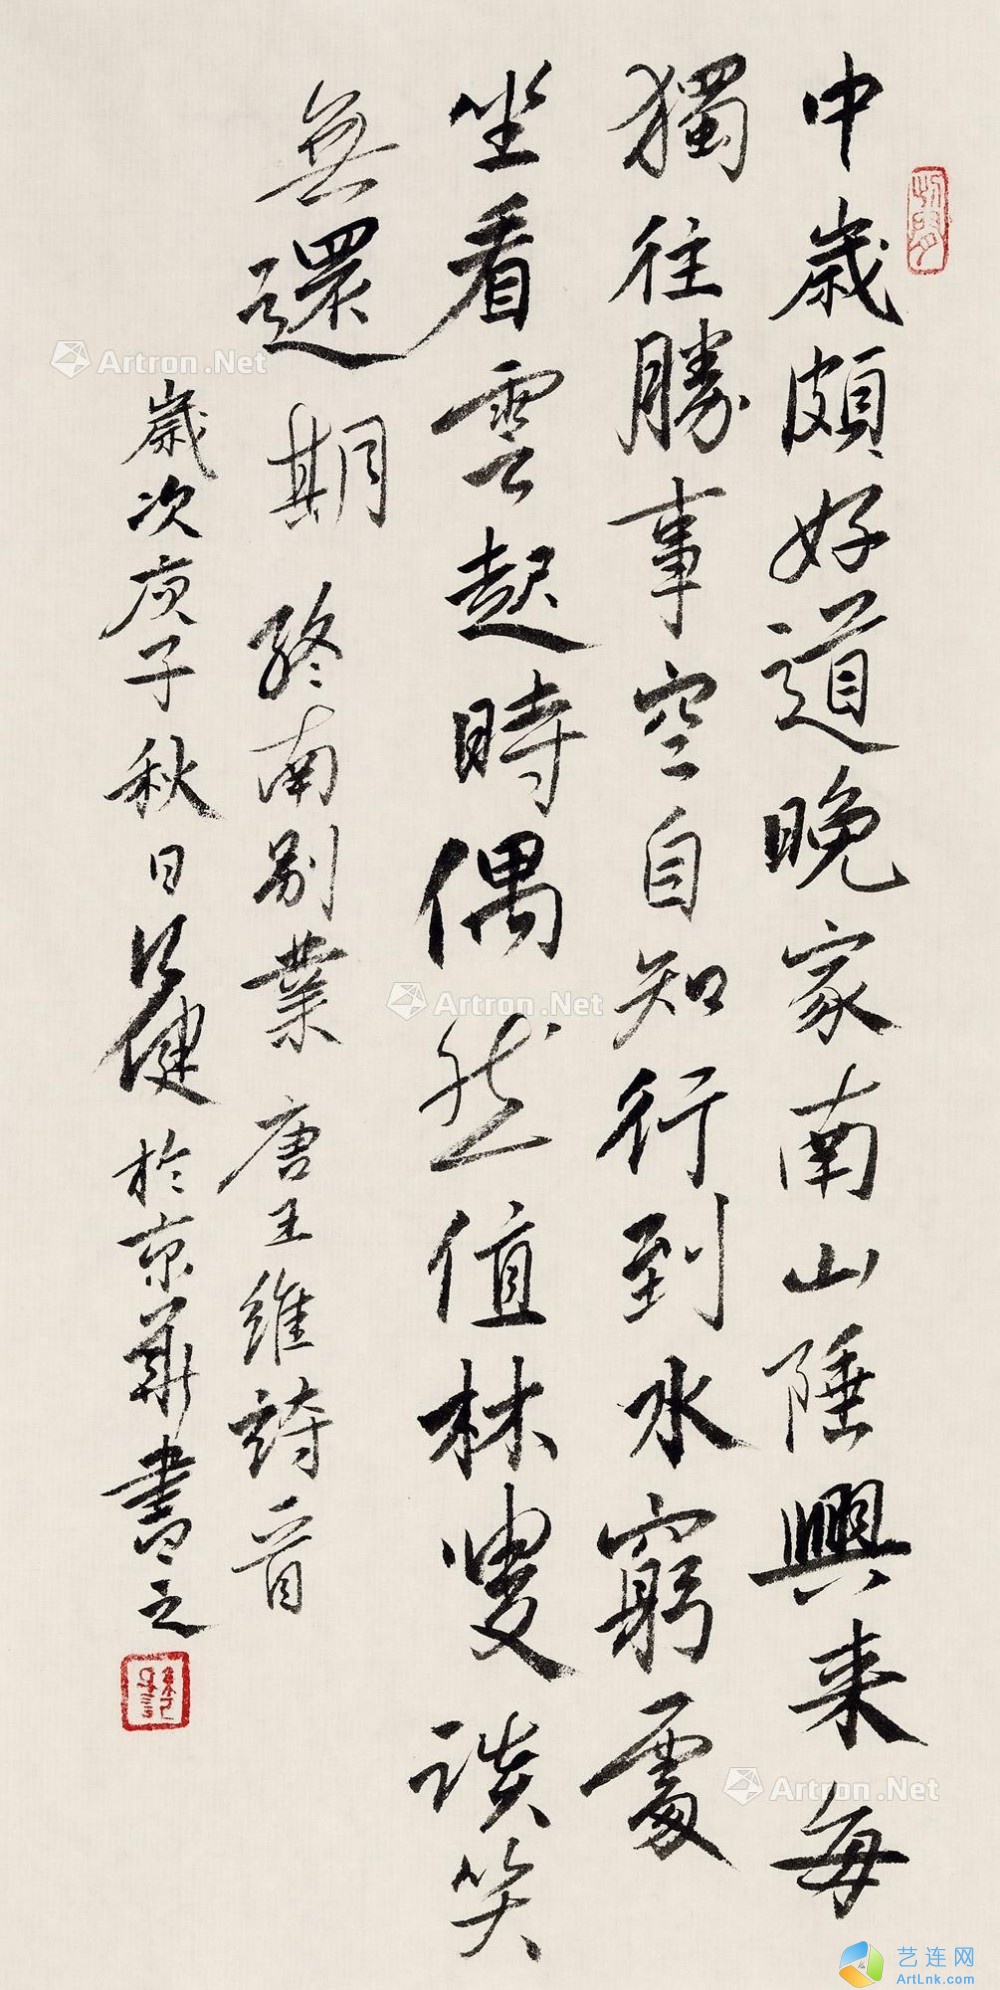 中歲頗好道晚家南山陲興来每
獨往勝事空自知行到水窮處
坐看雲起時偶然值林叟談笑
無還期
終南别業唐王維詩一首
歲次庚子秋日
健於京華書之
Artron.Net
Artron.Net
Artron.Net
艺连网
ArtLnk.com